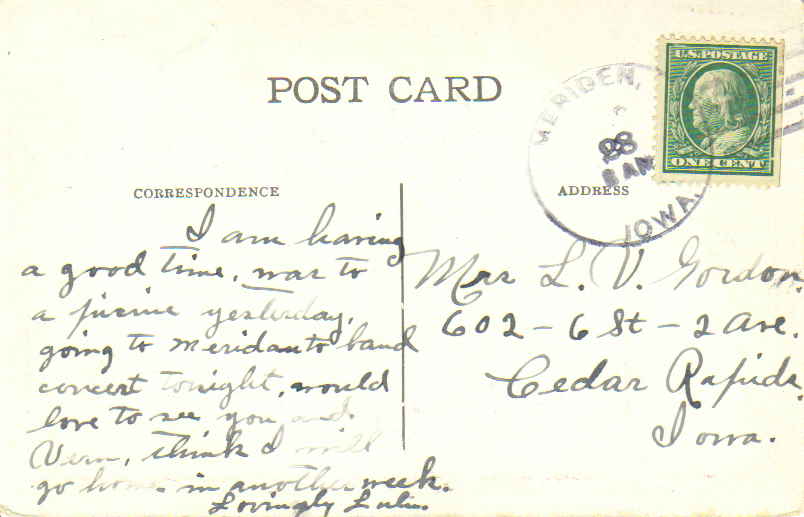 POST CARD
MERIDEN,
28
8 AM
IOWA.
U.S. POSTAGE
ONE CENT
CORRESPONDENCE
ADDRESS
I am having
a good time, was to
a picine yesterday,
going to Meridan to band
concert tonight, would
love to see you and
Vern, think I will
go home in another week.
Lovingly
Mrs L. V. Gordon.
602 - 6 St - 2 Ave.
Cedar Rapids.
Iowa.